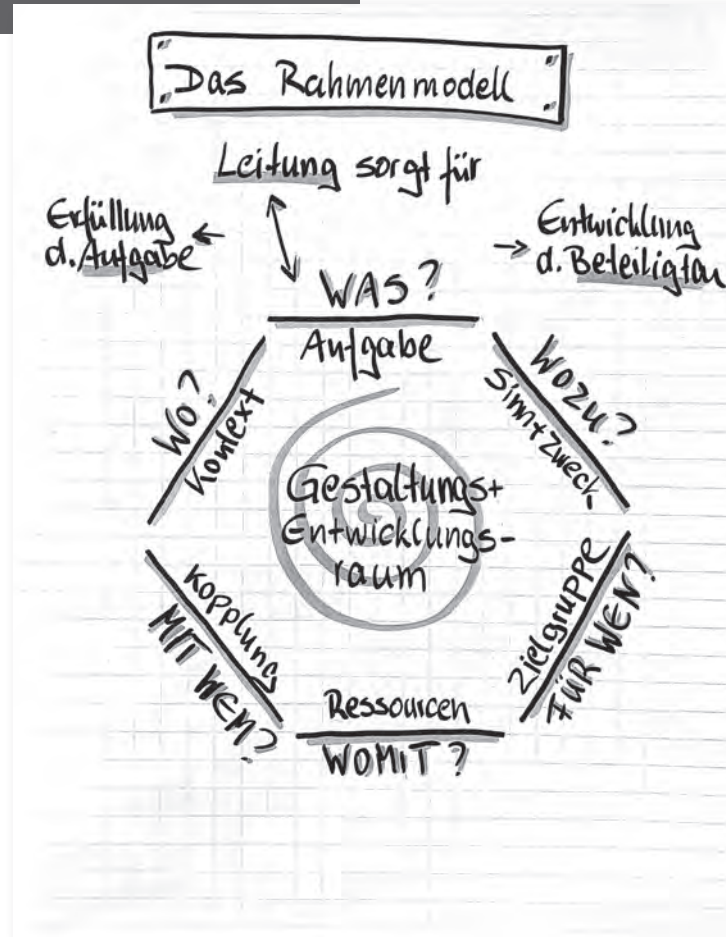 Das Rahmenmodell
Leitung sorgt für
Erfüllung
d. Aufgabe
Entwicklung
d. Beteiligten
WAS?
Aufgabe
WOZU?
Sinn+Zweck
Zielgruppe
FÜR WEN?
Ressourcen
WOMIT?
Kopplung
MIT WEM?
WO?
Kontext
Gestaltungs+
Entwicklungs-
raum